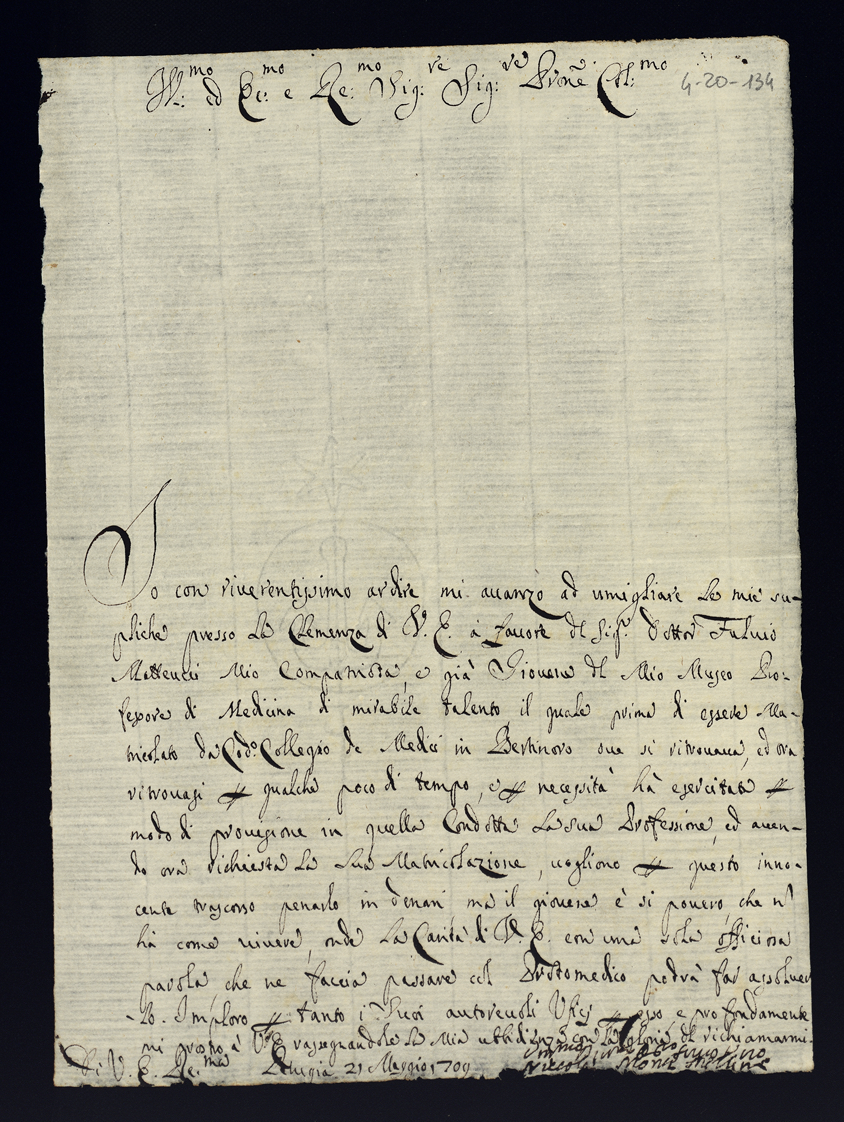 Ill:mo ed Ec:mo e Re:mo Sig:re Sig:re Prone Col:mo
4-20-134
Io con riverentissimo ardire mi avanzo ad umigliare le mie su-
pliche presso la Clemenza di V. E. à favore del Sig.r Dottor Fulvio
Matteucci Mio Compatriota, e già Giovene del Mio Museo Pro-
fessore di Medicina di mirabile talento il quale prima di essere Ma-
tricolato da Cod:o Collegio de Medici in Bertinoro ove si ritrovava, ed ora
ritrovasi qualche poco di tempo, e necessità hà esercitata
modo di provisione in quella Condotta la sua Professione, ed aven-
do ora richiesta la sua Matricolazione, vogliono questo inno-
cente trascorso penarlo in denari ma il giovene è si povero che n
hà come vivere, onde la Carità di V. E. con una sola officiosa
parola che ne faccia passare col Protomedico potrà far assolver
-lo. Imploro tanto i Suoi autorevoli Ufici esso e profondamente
mi prostro à V. E. rassegnandole la Mia ubbidienza con la gloria di richiamarmi
Di V. E. Re:ma Perugia 21 Maggio 1709